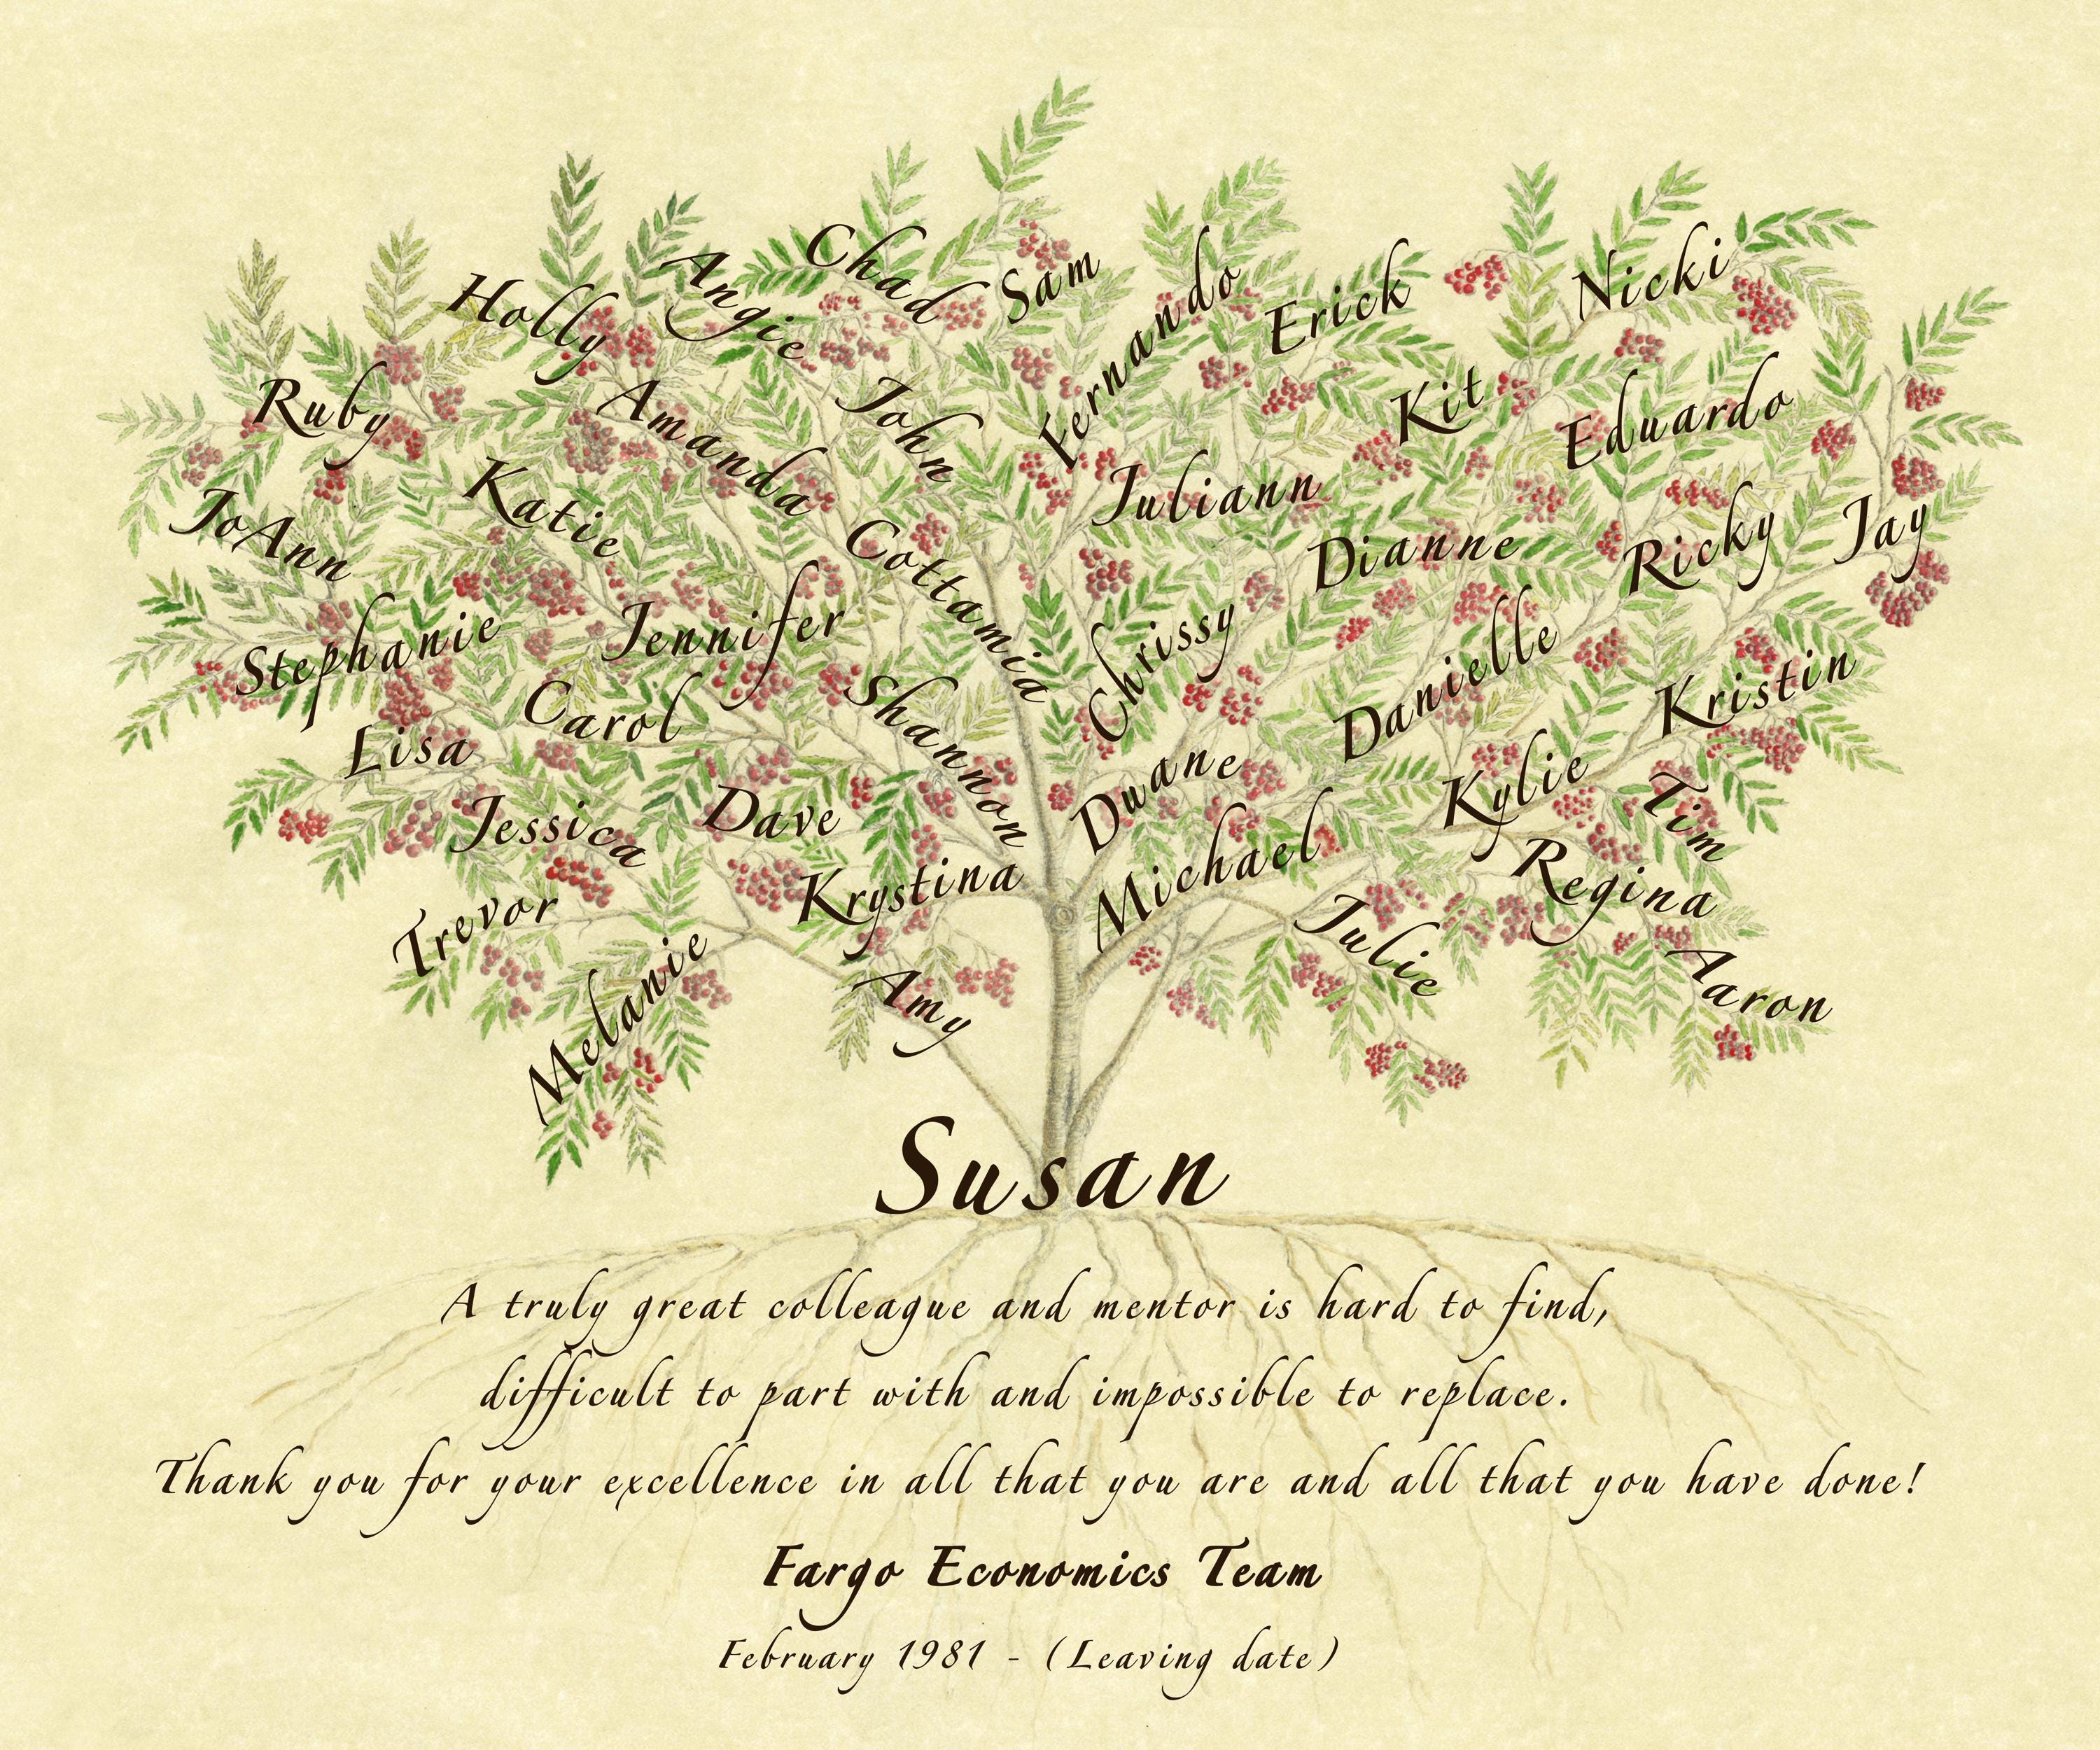 Chad
Sam
Nicki
Angie
Holly
Fernando
Erick
Ruby
Amanda
John
Kit
Eduardo
JoAnn
Katie
Juliann
Cottamia
Dianne
Ricky
Jay
Stephanie
Jennifer
Chrissy
Danielle
Kristin
Lisa
Carol
Shannon
Duane
Kylie
Tim
Jessica
Dave
Krystina
Michael
Regina
Trevor
Melanie
Amy
Julie
Aaron
Susan
A truly great colleague and mentor is hard to find,
difficult to part with and impossible to replace.
Thank you for your excellence in all that you are and all that you have done!
Fargo Economics Team
February 1981 - (Leaving date)